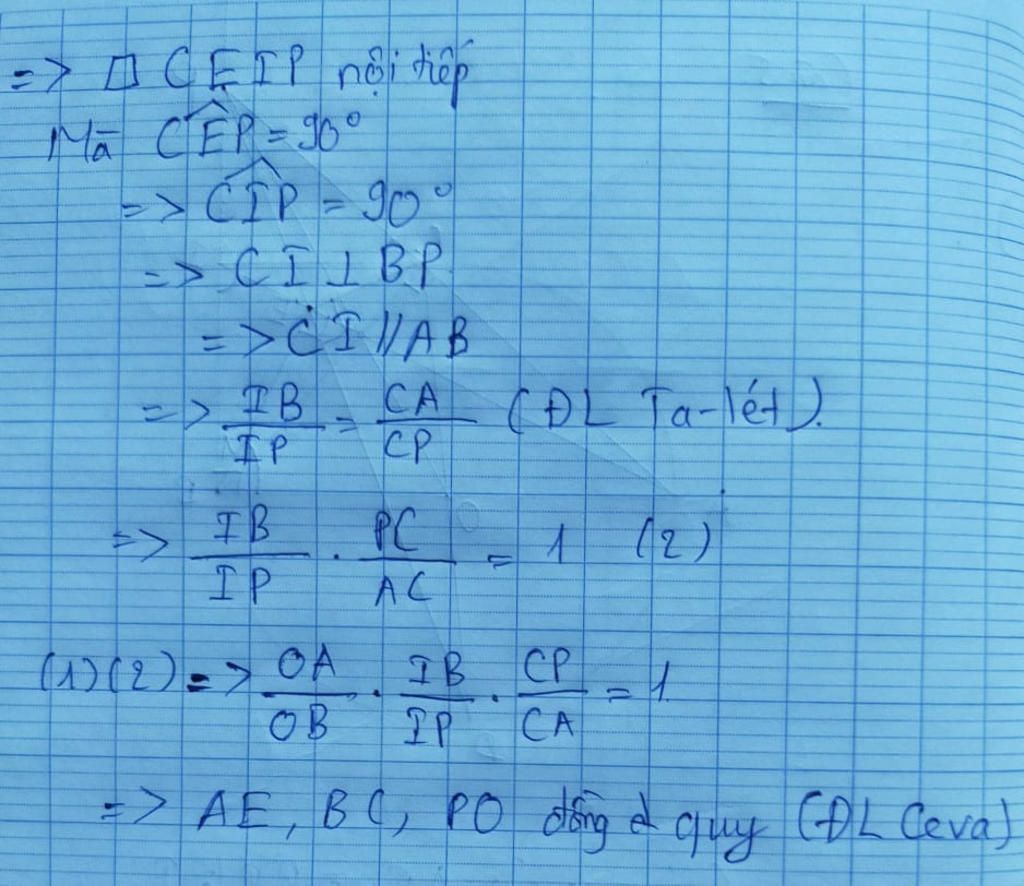 => □ CEIP nội tiếp
Mà CÊP = 90°
=> CÎP = 90°
=> CI ⊥ BP
=> CI // AB
=> IB/IP = CA/CP (ĐL Ta-lét).
=> IB/IP . PC/AC = 1 (2)
(1)(2) => OA/OB . IB/IP . CP/CA = 1
=> AE, BC, PO đồng quy (ĐL Ceva)